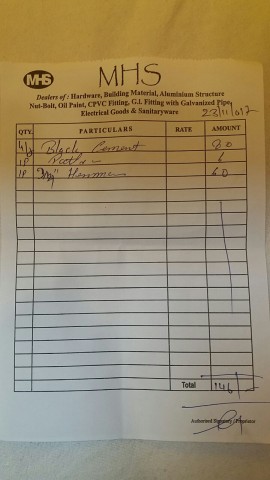 MHS
MHS
Dealers of : Hardware, Building Material, Aluminium Structure
Nut-Bolt, Oil Paint, CPVC Fitting, G.I. Fitting with Galvanized Pipe,
Electrical Goods & Sanitaryware
23/11/017
QTY. PARTICULARS RATE AMOUNT
Black Cement 80
1P 6
1P Hammer 60
Total 146/
Authorised Signatory / Proprietor